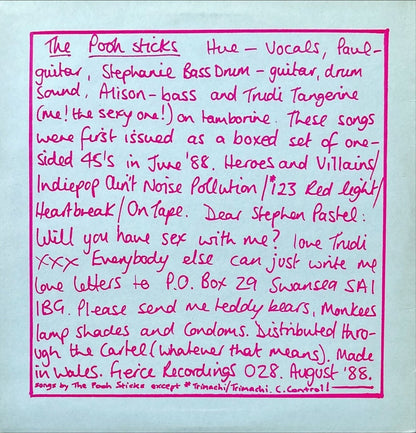 The Pooh Sticks Hue - Vocals, Paul-
guitar, Stephanie BassDrum - guitar, drum
sound, Alison - bass and Trudi Tangerine
(me! the sexy one!) on tamborine. These songs
were first issued as a boxed set of one-
sided 45's in June '88. Heroes and Villains/
Indiepop Ain't Noise Pollution/*123 Red light/
Heartbreak/On Tape. Dear Stephen Pastel:
Will you have sex with me? love Trudi
xxx Everybody else can just write me
love letters to P.O. Box 29 Swansea SA1
1BG. Please send me teddy bears, Monkees
lamp shades and condoms. Distributed thro-
ugh the Cartel (whatever that means). Made
in Wales. Fierce Recordings 028. August '88.
songs by The Pooh Sticks except *Trimachi/Trimachi. C. Control!